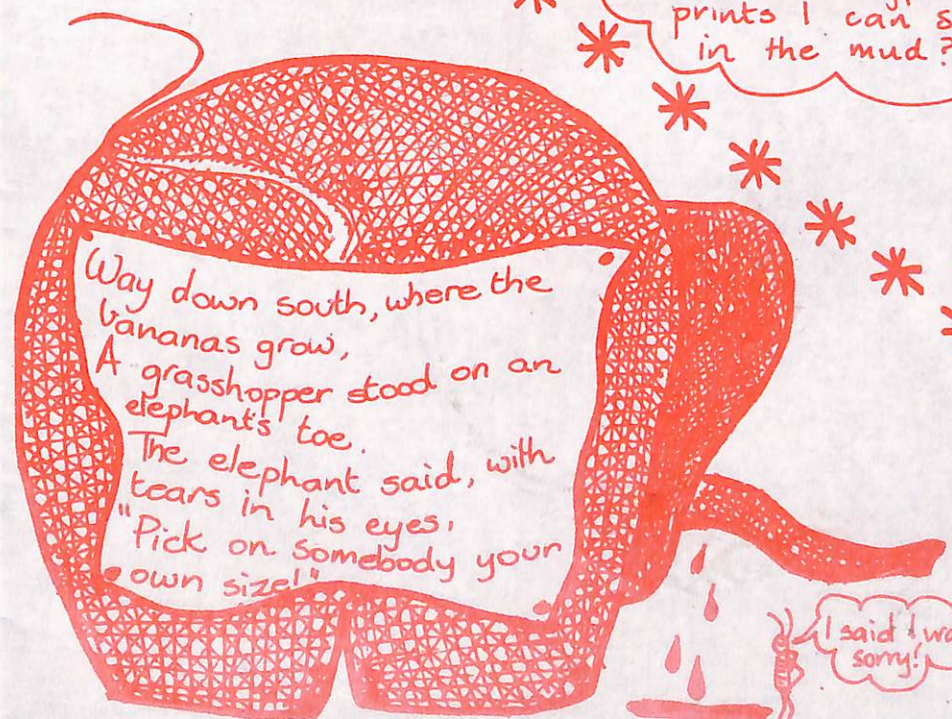 prints I can
in the mud?
Way down south, where the
bananas grow,
A grasshopper stood on an
elephant's toe.
The elephant said, with
tears in his eyes,
"Pick on somebody your
own size!"
I said I
sorry!